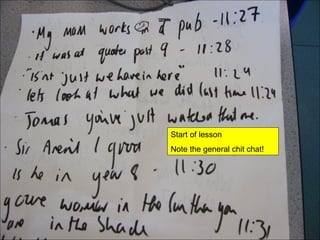 · My mom works in a pub - 11:27
· it was at quater past 9 - 11:28
· "Isnt just we here in here" 11:29
· lets look at what we did last time 11:29
· Jomas you've just watched that one.
Start of lesson
Note the general chit chat!
· Sir Arent I good
Is he in year 8 - 11:30
youre warmer in the sun than you
are in the Shade 11:31